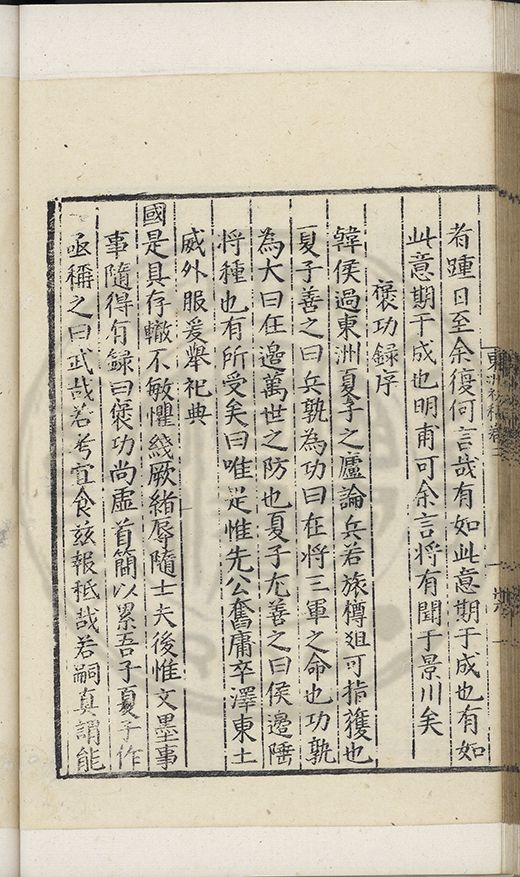 者踵日至余復何言哉有如此意期于成也有如
此意期于成也明甫可余言将有聞于景川矣
褒功録序
韓侯過東洲夏子之廬論兵若旅樽俎可指獲也
夏子善之曰兵孰為功曰在将三軍之命也功孰
為大曰在邉萬世之防也夏子尢善之曰侯邉陲
将種也有所受矣曰唯是惟先公奮庸卒澤東土
威外服爰舉祀典
國是具存轍不敏懼綫厥緒辱隨士夫後惟文墨事
事隨得有録曰褒功尚虚首簡以累吾子夏子作
亟稱之曰武哉若考宜食兹報秪哉若嗣真謂能
東洲初稿卷三